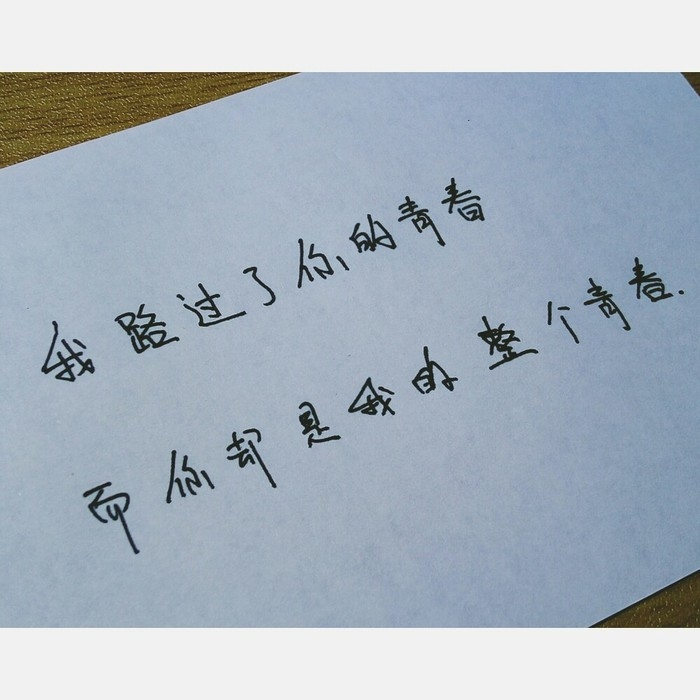 我路过了你的青春
而你却是我的整个青春.